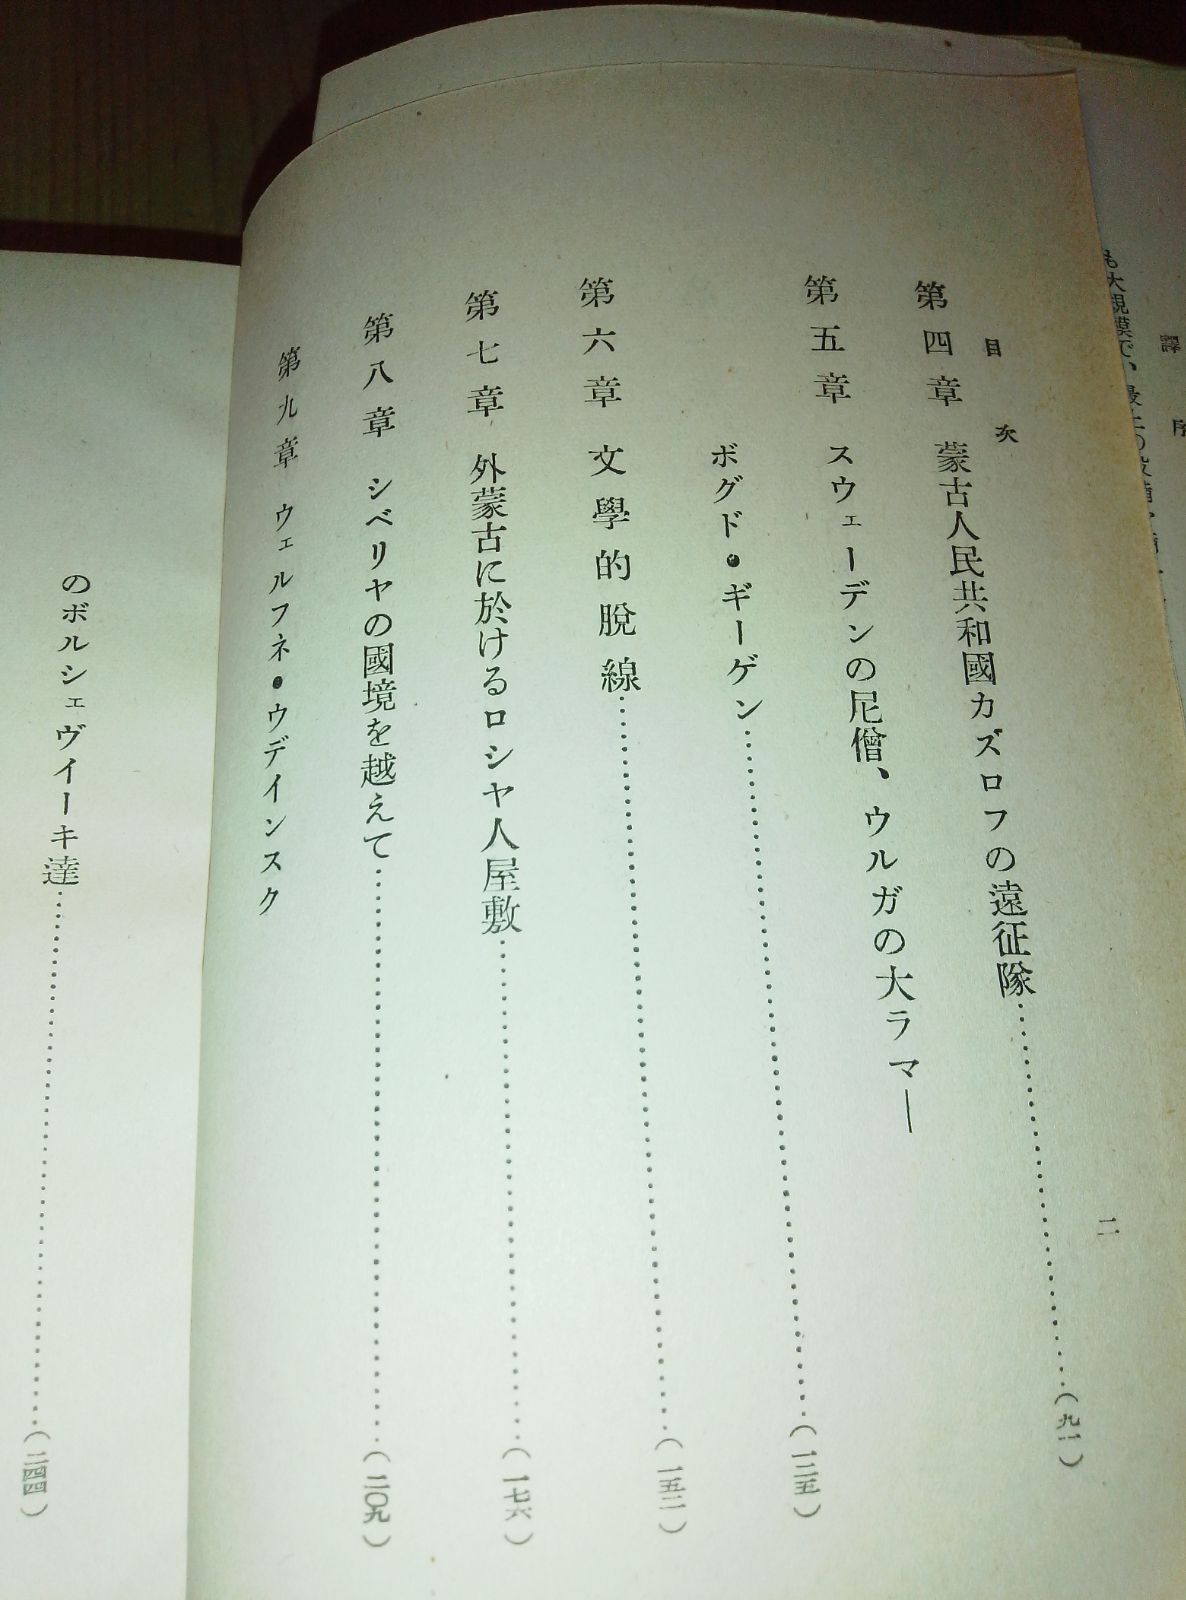 譯序
も大規模で、
二
目次
第四章 蒙古人民共和國カズロフの遠征隊……(九一)
第五章 スウェーデンの尼僧、ウルガの大ラマー
ボグド・ギーゲン……(一二五)
第六章 文學的脫線……(一五二)
第七章 外蒙古に於けるロシヤ人屋敷……(一七六)
第八章 シベリヤの國境を越えて……(二〇九)
第九章 ウェルフネ・ウデインスク
のボルシェヴイーキ達……(二四四)